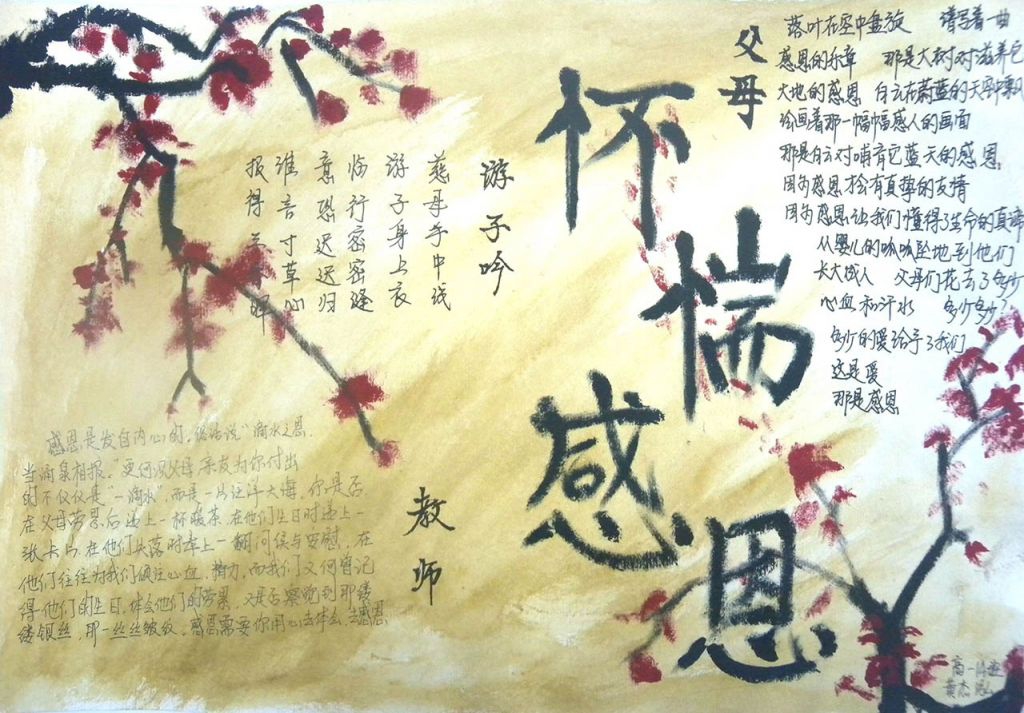 怀惴
感恩
父母
落叶在空中盘旋 谱写着一曲
感恩的乐章 那是大树对滋养它
大地的感恩 白云在蔚蓝的天空中飘
绘画着那一幅幅感人的画面
那是白云对哺育它蓝天的感恩
因为感恩才会有真挚的友情
因为感恩让我们懂得了生命的真谛
从婴儿的呱呱坠地到他们
长大成人 父母们花去了多少
心血和汗水 多少多少
多少的爱给予了我们
这是爱
那是感恩
游子吟
慈母手中线
游子身上衣
临行密密缝
意恐迟迟归
谁言寸草心
报得三春晖
教师
感恩是发自内心的。俗话说“滴水之恩,
当涌泉相报。更何况父母,亲友为你付出
的不仅仅是“一滴水”,而是一片汪洋大海。你是否
在父母劳累后递上一杯暖茶,在他们生日时递上一
张卡片,在他们失落时奉上一翻问候与安慰,在
他们往往为我们倾注心血、精力,而我们又何曾记
得他们的生日,体会他们的劳累,又是否察觉到那缕
缕银丝,那一丝丝皱纹。感恩需要你用心去体会,去感恩
高一
黄杰